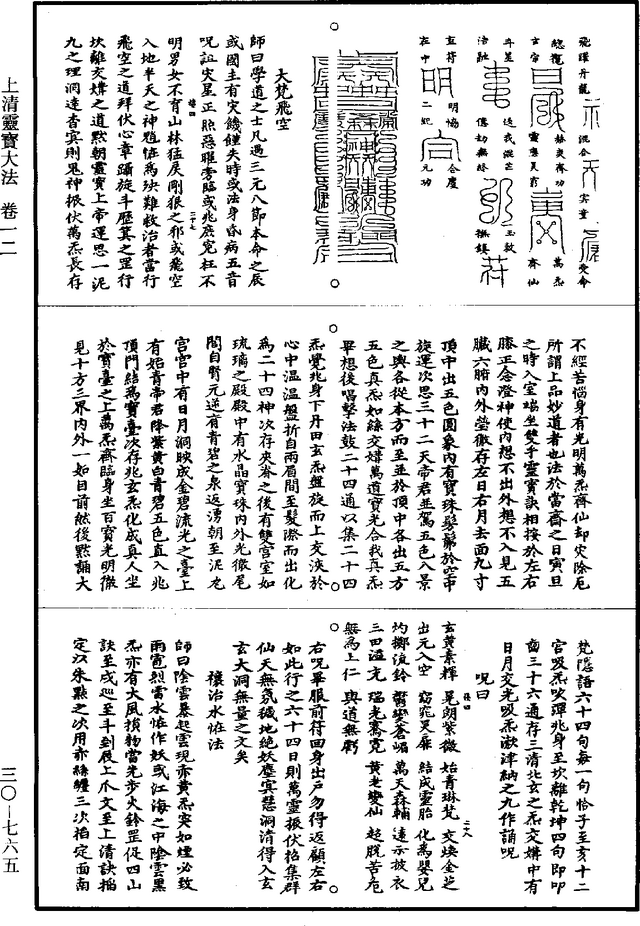 飛躍丹龍
總覆
玄帝
混合
赫奕齊功
靈應具前
萬炁
齊仙
受命
斗星
治融
近我混芒
傳劫無終
玉敕
撫鎮
直符
在中
明惱
二妃
合慶
元功
大梵飛空
師曰學道之士凡遇三元八節本命之辰
或國主有灾饑饉失時或法身昏病五音
呪詛灾星正照惡曜旁臨或兆庶冤枉不
明男女不育山林猛戾剛狠之邪或飛空
入地半天之神魁恠為殃難救治者當行
飛空之道拜伏心章躡旋斗歷箕之罡行
坎離交媾之道默朝靈寶上帝運思一泥
九之理洞達杳冥則鬼神振伏萬炁長存
不經苦惱身有光明萬炁齊仙却灾除厄
所謂上品妙道者也法於當齋之日寅旦
之時入室端坐雙手靈寶訣相接於左右
膝正念澄神使内想不出外想不入見五
臟六腑内外瑩徹存左日右月去面九寸
頂中出五色圓象内有寶珠髣髴於空中
旋運次思三十二天帝君並駕五色八景
之輿各從本方而至並於頂中各出五方
五色真炁如絲交媾萬道寶光合我真炁
畢想後唱擊法鼓二十四通以集二十四
炁覺兆身下丹田玄炁盤旋而上交浹於
心中温温盤折自兩眉間至髮際而出化
為二十四神次存夾脊之後有雙宮室如
琉璃之殿殿中有水晶寶珠内外光徹尾
閭自腎元逆有青碧之泉返湧朝至泥丸
宮宮中有日月洞映成金碧流光之臺上
有始青帝君降紫黃白青碧五色直入兆
頂門結為寶臺次存兆玄炁化成真人坐
於寶臺之上萬炁齊臨身坐百寶光明徹
見十方三界内外一如目前然後默誦大
梵隱語六十四句每一句恰子至亥十二
宮吸炁吹彈兆身至坎離乾坤四句即叩
齒三十六通存三清北玄之炁交媾中有
日月交光吸炁漱津納之九作誦呪
呪曰
玄黃素輝 晃朗紫微 始青琳梵 交煥金芝
出元入空 窈窕天扉 結成靈胎 化為嬰兒
灼擲流鈴 鬱變蒼嵋 萬天森輔 遠示披衣
三田溢充 瑞光騫霓 黃老變仙 超脱苦危
無為上仁 與道無虧
右呪畢服前符回身出戶勿得返顧左右
如此行之六十四日則萬靈振伏招集群
仙天無氛穢地絶妖塵冥慧洞清得入玄
玄大洞無量之文矣
禳治水恠法
師曰陰雲暴起雲現赤黃炁突如煙必致
雨雹烈雷水恠作妖或江海之中陰雲黑
炁亦有大風損物當先步火鈴罡促四山
訣至戌巡至斗到辰上爪文至上清訣掐
定以朱點之次用赤絲纏三次掐定面南
上清靈寶大法 卷一二
三〇—七六五